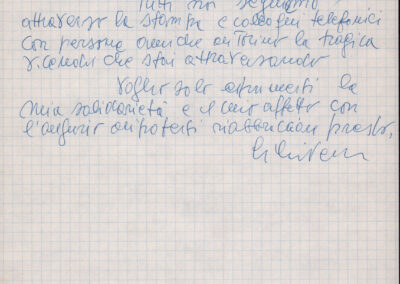 Tutti noi seguiamo
attraverso la stampa e colloqui telefonici
con persone amiche di Torino la tragica
vicenda che stai attraversando
Voglio solo esprimerti la
mia solidarietà e il mio affetto con
l'augurio di poterti riabbracciare presto,